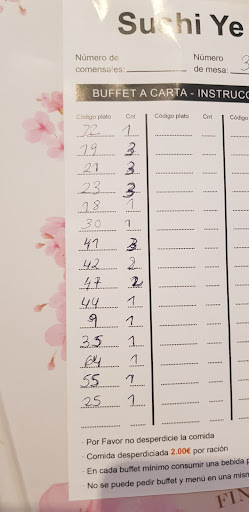 Sushi Ye
Número de comensales: Número de mesa: 3
BUFFET A CARTA - INSTRUCC
Código plato Cnt Código plato Cnt Código
72 1
19 3
21 3
23 3
18 1
30 1
41 3
42 2
47 2
44 1
9 1
35 1
64 1
55 1
25 1
Por Favor no desperdicie la comida
Comida desperdiciada 2.00€ por ración
En cada buffet mínimo consumir una bebida p
No se puede pedir buffet y menú en una mism